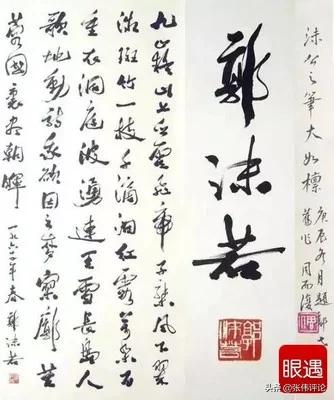 沫公之筆大如椽
庚辰冬月題
舊作 周而復
郭沫若
九嶷山上白雲飛帝子乘風下翠
微斑竹一枝千滴淚紅霞萬朵百
重衣洞庭波湧連天雪長島人
歌地動詩我欲因之夢寥廓芙
蓉國裏盡朝暉
一九六 年春 郭沫若
眼遇
头条 @张伟评论